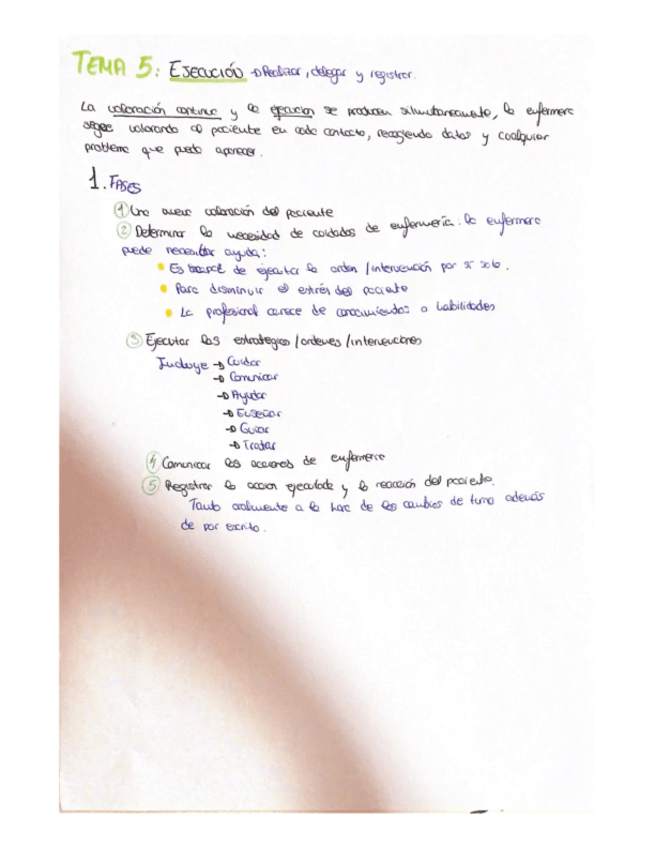 TEMA 5: EJECUCIÓN → Realizar, delegar y registrar.
La valoración continua y la ejecución se producen simultaneamente, la enfermera
sigue valorando al paciente en cada contacto, recogiendo datos y cualquier
problema que pueda aparecer.
1. FASES
① Una nueva valoración del paciente
② Determinar la necesidad de cuidados de enfermería: la enfermera
puede necesitar ayuda:
Es incapaz de ejecutar la orden / intervención por si solo.
Para disminuir el estrés del paciente
La profesional carece de conocimientos o habilidades
③ Ejecutar las estrategias / ordenes / intervenciones
Incluye → Cuidar
→ Comunicar
→ Ayudar
→ Enseñar
→ Guiar
→ Tratar
④ Comunicar las acciones de enfermeria
⑤ Registrar la accion ejecutada y la reacción del paciente.
Tanto oralmente a la hora de los cambios de turno además
de por escrito.